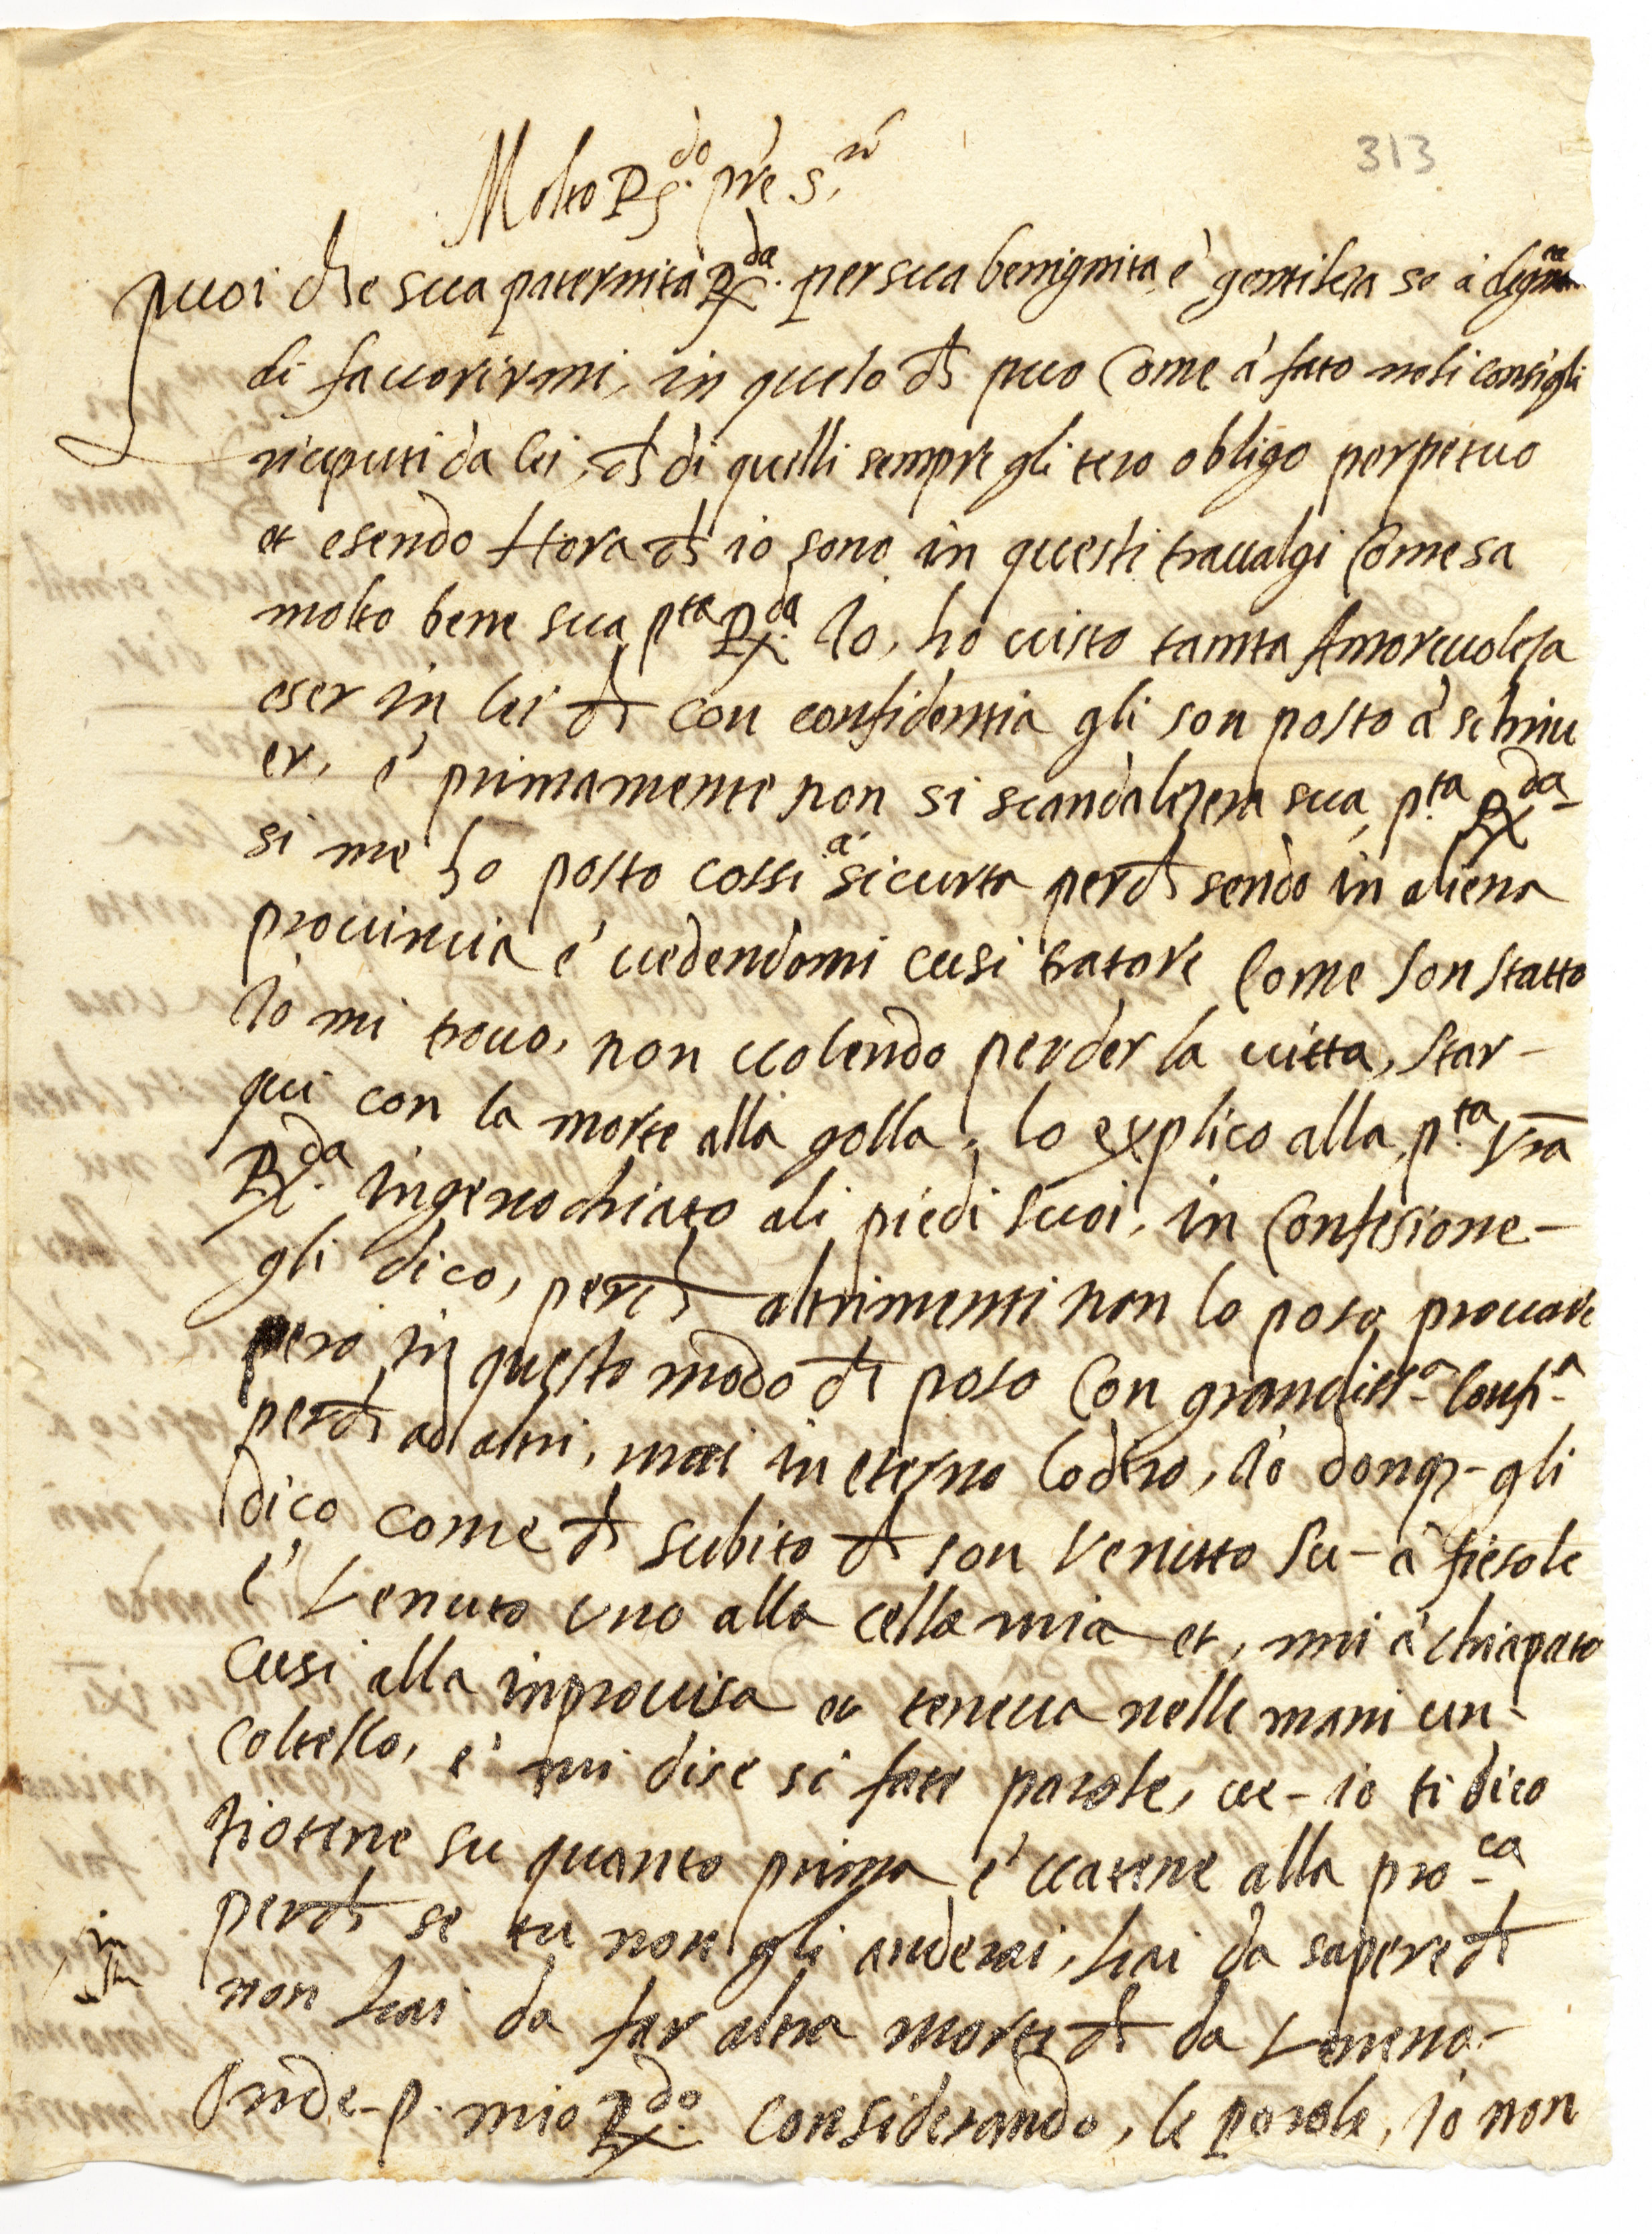 313
Molto R.do p're. S.or
puoi che sua paternità R.da per sua benignita, è gentileza se à degnata
di fauorirmi, in quelo ch puo Come à fato neli consigli
riceputi da lei, ch di quelli sempre gli tero obligo perpetuo
et esendo Hora ch io sono in questi trauaLgi Come sa
molto bene sua p.ta R.da Io, ho uisto tamta Amoreuoleza
eser in lei ch con confidentia gli son posto à schriu
er, è primamente non si scandalizera sua p.ta R.da
si me ho posto cossi à sicurta perch sendo in aliena
prouincia è uedendomi cusi tratare Come son statto
Io mi trouo, non uolendo perder la uitta, star-
qui con la morte alla golla, lo explico alla p.ta Vra
R.da ingenochiato ali piedi suoi, in Confesione-
gli dico, perch altrimenti non lo poso prouare
pero in questo modo ch poso Con grandis.a Confi.a
perch ad altri, mai in eterno lo diro, Io donq- gli
dico come ch subito ch son Venutto su- à fiesole
è Venuto uno alla cella mia et, mi à chiapato
Cusi alla inprouisa et teneua nelle mani un-
coltello, è mi dise si fate parole, ue- io ti dico
tiotene su quanto prima è uatene alla pro.ca
perch se tu non gli anderai, hai da sapere ch
non hai da far altra morte ch da Veneno-
Onde- p. mio R.do Considerando, le parole, io non